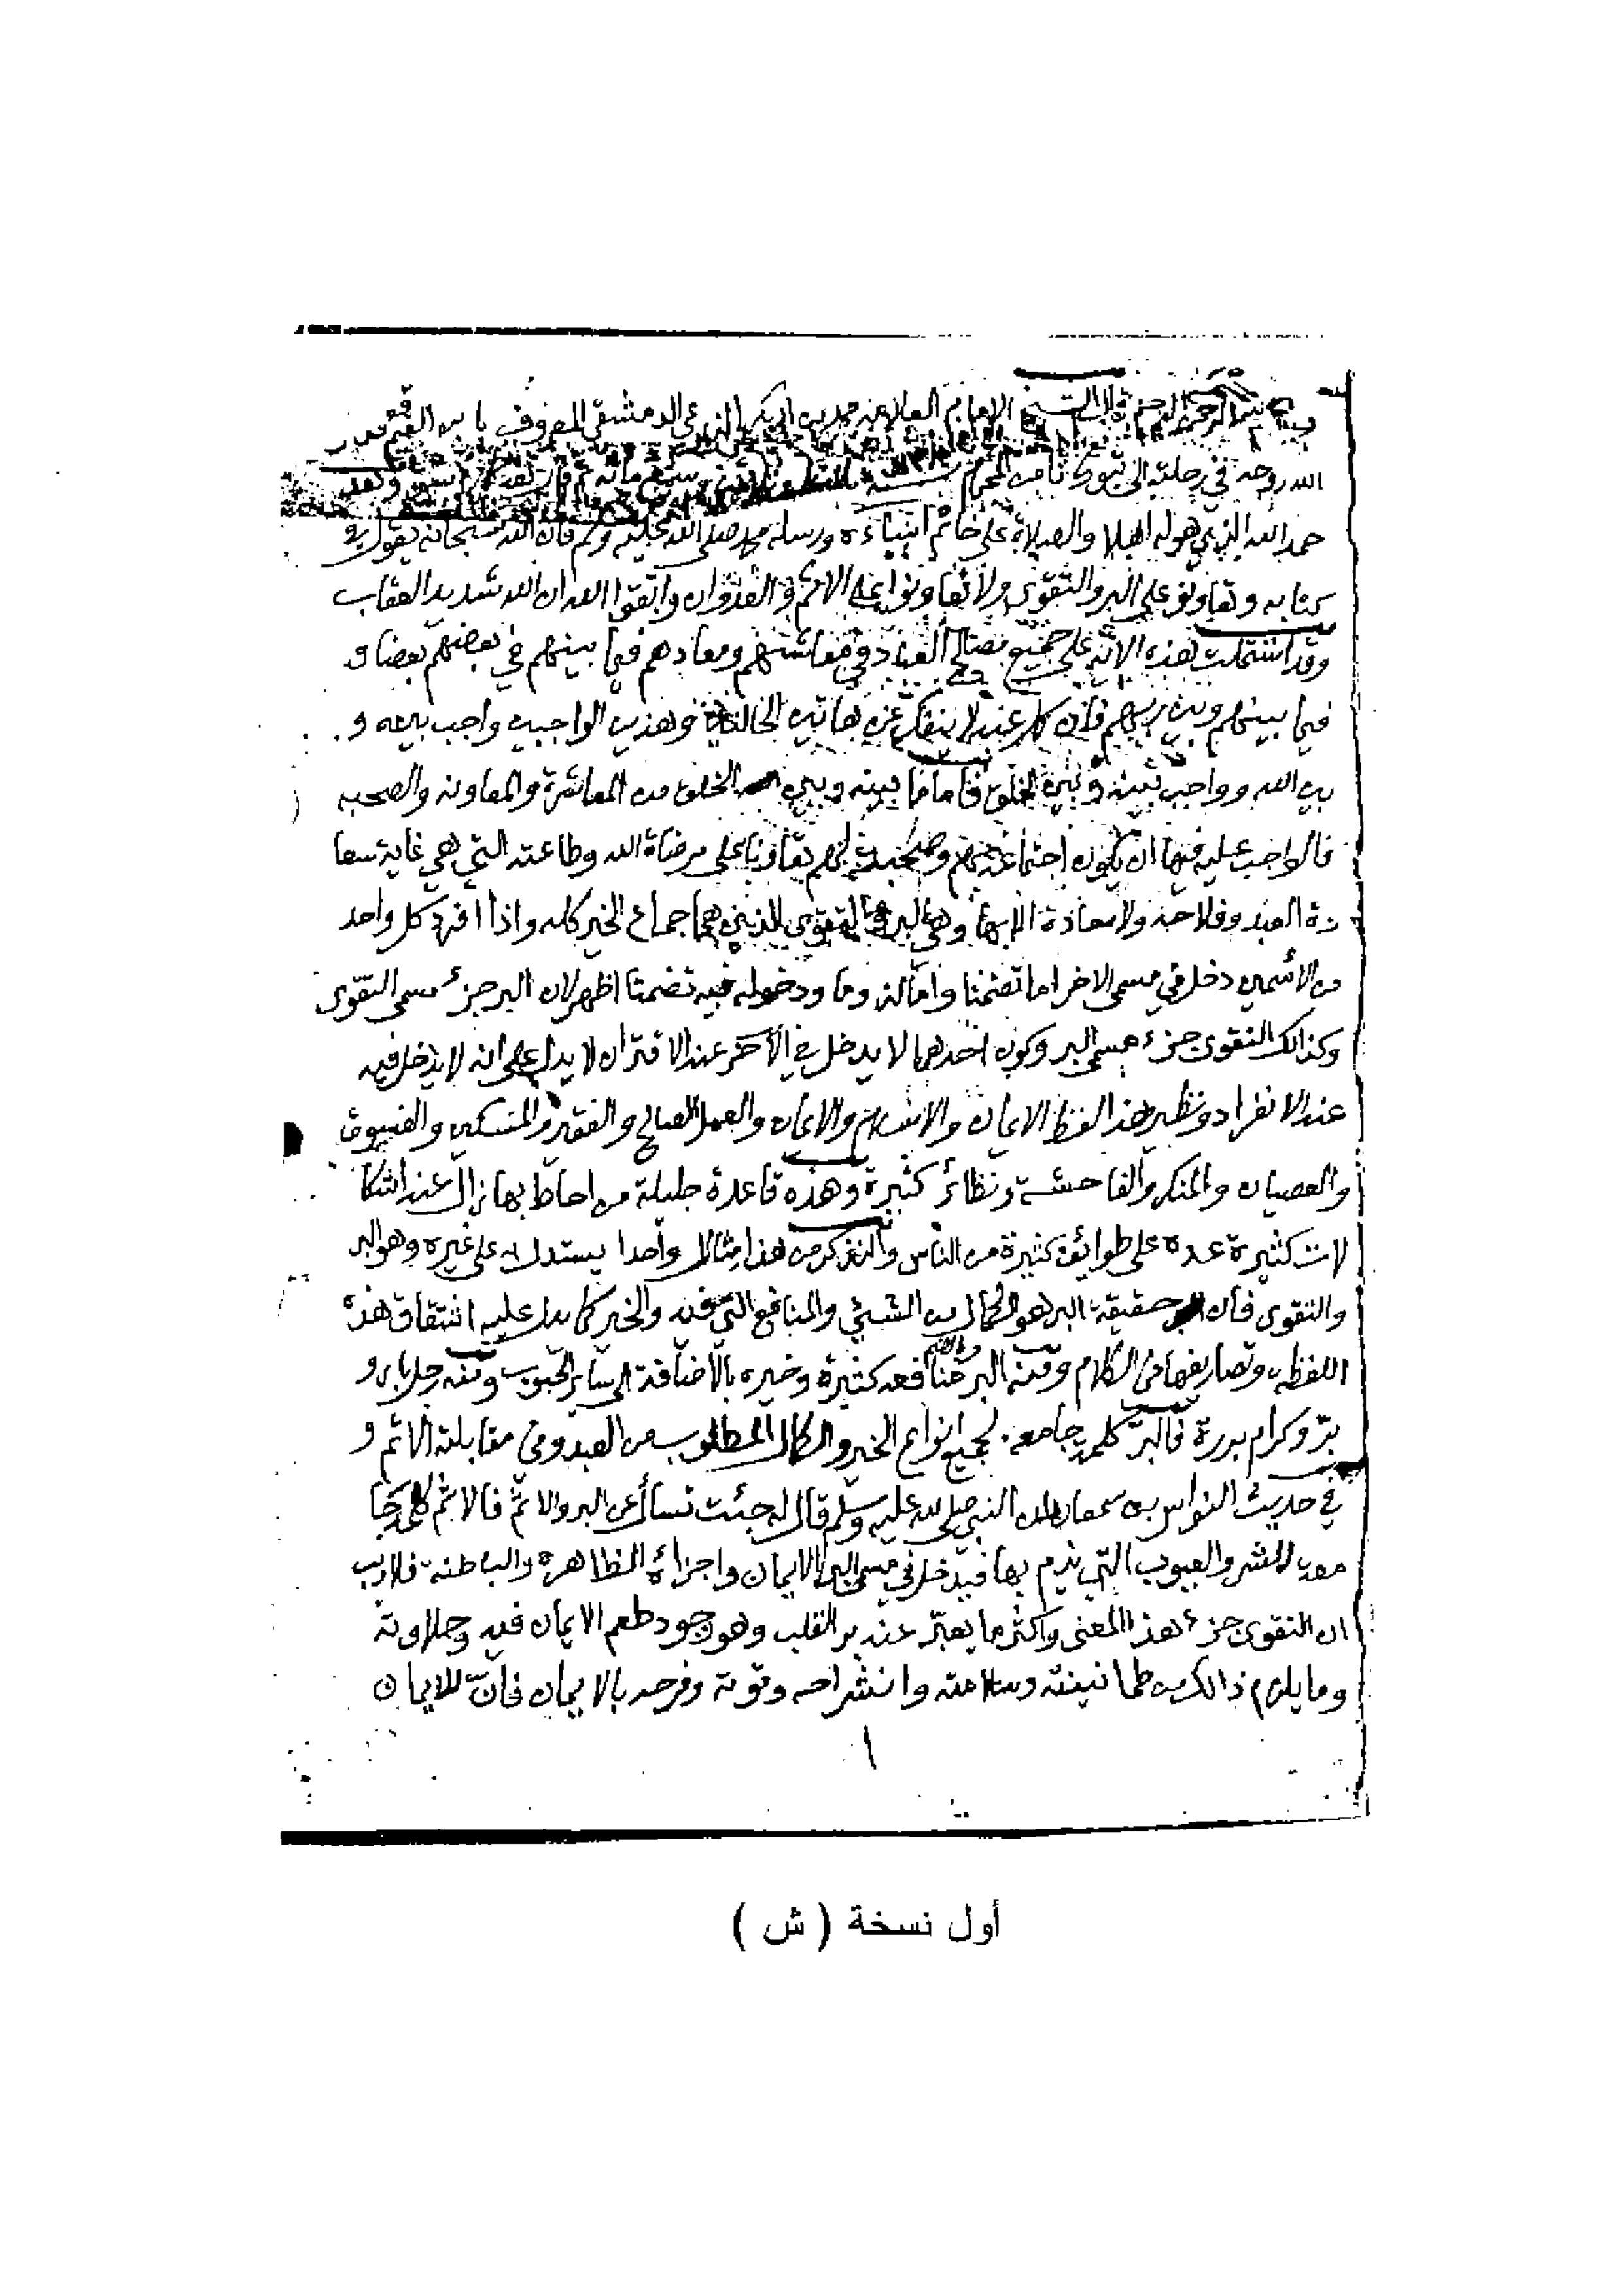 بسم الله الرحمن الرحيم قال الشيخ الامام العلامة محمد بن ابي بكر الزرعي الدمشقي المعروف بابن القيم قدس
الله روحه في رحلته الى تبوك ثامن المحرم سنة
حمد الله الذي هو له اهلا والصلاة على خاتم انبياءه ورسله محمد صلى الله عليه وسلم فان الله سبحانه يقول في
كتابه وتعاونو على البر والتقوى ولا تعاونوا على الاثم والعدوان واتقوا الله ان الله شديد العقاب
وقد اشتملت هذه الاية على جميع مصالح العباد في معاشهم ومعادهم فيما بينهم في بعضهم بعضا و
فيما بينهم وبين ربهم فان كل عبد لا ينفك عن هاتين الحالتين وهذين الواجبين واجب بينه و
بين الله وواجب بينه وبين الخلق فاما ما بينه وبين الخلق من المعاشرة والمعاونه والصحبه
فالواجب عليه فيها ان يكون اجتماعه بهم وصحبته لهم تعاونا على مرضاة الله وطاعته التي هي غاية سعا
دة العبد وفلاحه ولا سعادة الا بها وهي البر والتقوى الذين هما جماع الخير كله واذا افرد كل واحد
من الاسمين دخل في مسمى الاخر اما تضمنا واما لزوما ودخوله فيه تضمنا اظهر لان البر جزء مسمى التقوى
وكذالك التقوى جزء مسمى البر وكون احدهما لا يدخل في الآخر عند الاقتران لا يدل على انه لا يدخل فيه
عند الانفراد ونظير هذا لفظ الايمان والاسلام والايمان والعمل الصالح والفقير والمسكين والفسوق
والعصيان والمنكر والفاحشة ونظائر كثيرة وهذه قاعدة جليلة من احاط بها زال عنه اشكا
لات كثيرة عده على طوائف كثيرة من الناس ولنذكر من هذا مثالا واحدا يستدل به على غيره وهو البر
والتقوى فان حقيقة البر هو الكمال من الشئي والمنافع التي فيه والخير كما يدل عليه اشتقاق هذه
اللفظه وتصاريفها في الكلام ومنه البر لمنافعه كثيرة وخيره بالاضافة الى سائر الحبوب ومنه رجل بار و
برّ وكرام بررة فالبرّ كلمة جامعه لجميع انواع الخير والكمال المطلوب من العبد وفي مقابلته الاثم و
في حديث النواس بن سمعان ان النبي صلى الله عليه وسلم قال له جئت تسأل عن البر والاثم فالاثم كلمة جا
معه للشر والعيوب التي يذم بها فيدخل في مسمى البر الايمان واجزائه الظاهره والباطنه فلا ريب
ان التقوى جزء هذا المعنى واكثر ما يعبّر عنه بر القلب وهو وجود طعم الايمان فيه وحلاوته
وما يلزم ذالك من طمانينته وسلامته وانشراحه وقوته وفرحه بالايمان فان للايمان
١
أول نسخة ( ش )